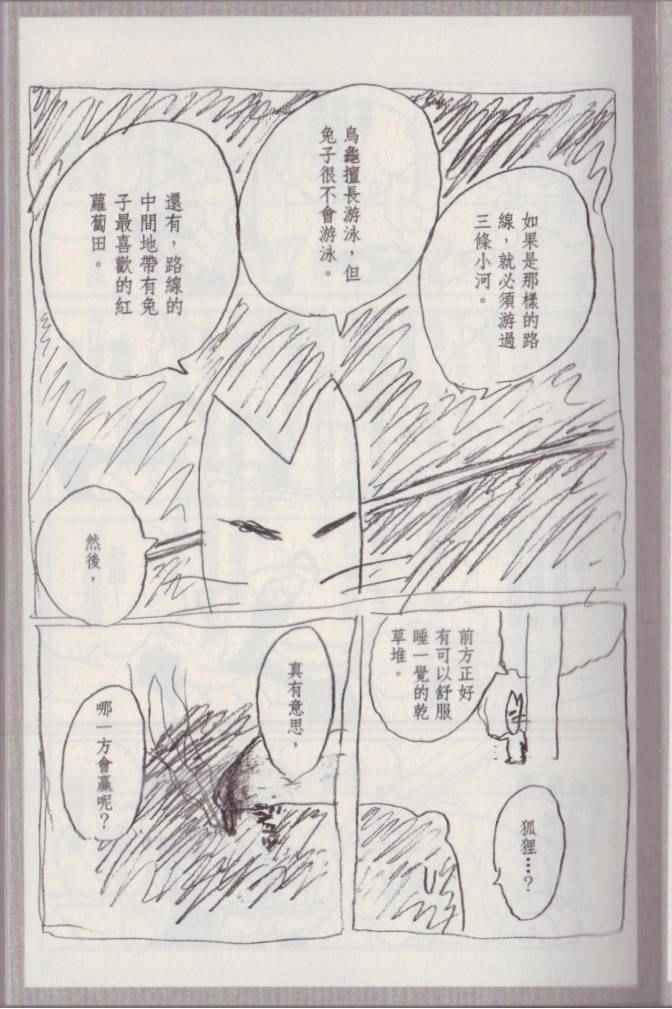 如果是那樣的路
線，就必須游過
三條小河。
烏龜擅長游泳，但
兔子很不會游泳。
還有，路線的
中間地帶有兔
子最喜歡的紅
蘿蔔田。
然後，
前方正好
有可以舒服
睡一覺的乾
草堆。
狐狸…？
真有意思，
哪一方會贏呢？